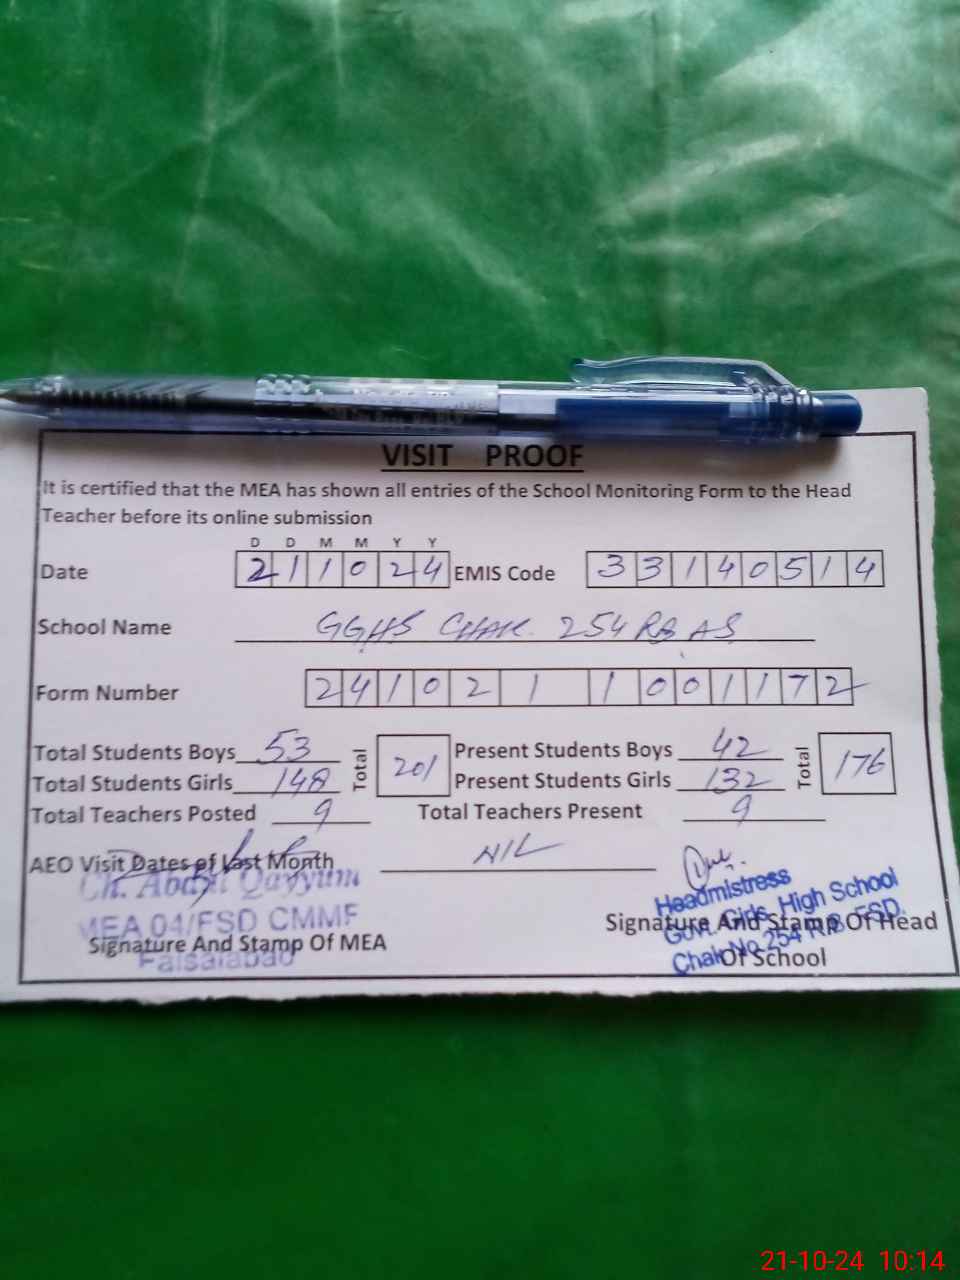 VISIT PROOF
It is certified that the MEA has shown all entries of the School Monitoring Form to the Head
Teacher before its online submission
D D M M Y Y
Date 211024 EMIS Code 33140514
School Name GGHS CHAK. 254 RB AS
Form Number 2410211001172
Total Students Boys 53 Total 201 Present Students Boys 42 Total 176
Total Students Girls 148 Present Students Girls 132
Total Teachers Posted 9 Total Teachers Present 9
AEO Visit Dates of Last Month NIL
Ch. Abdul Qayyum
MEA 04/FSD CMMF
Faisalabad
Signature And Stamp Of MEA
Headmistress
Govt. Girls High School
Chak No. 254 R.B. FSD.
Signature And Stamp Of Head
Of School
21-10-24 10:14